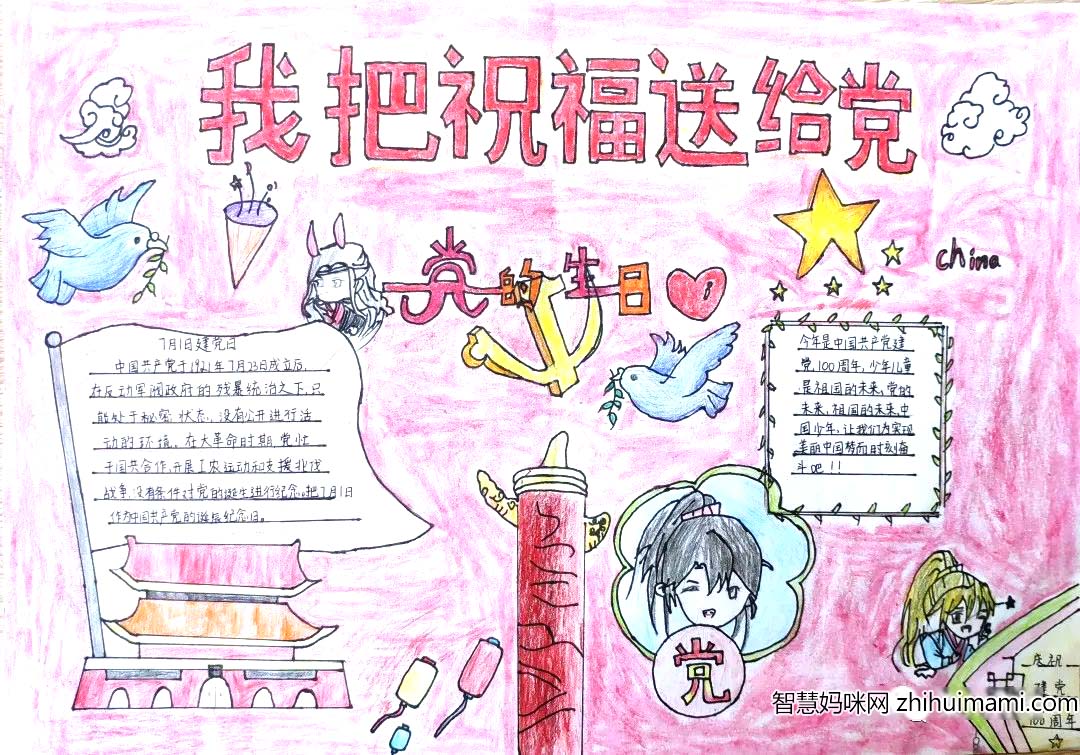 我把祝福送给党
党的生日
china
7月1日建党日
中国共产党于1921年7月23日成立后,
在反动军阀政府的残暴统治之下,只
能处于秘密状态,没有公开进行活
动的环境。在大革命时期,党忙
于国共合作,开展工农运动和支援北伐
战争,没有条件对党的诞生进行纪念。把7月1日
作为中国共产党的诞辰纪念日。
今年是中国共产党建
党,100周年,少年儿童
是祖国的未来,党的
未来,祖国的未来,中
国少年,让我们为实现
美丽中国梦而时刻奋
斗吧!!
党
庆祝
建党
100周年
智慧妈咪网 zhihuimami.com